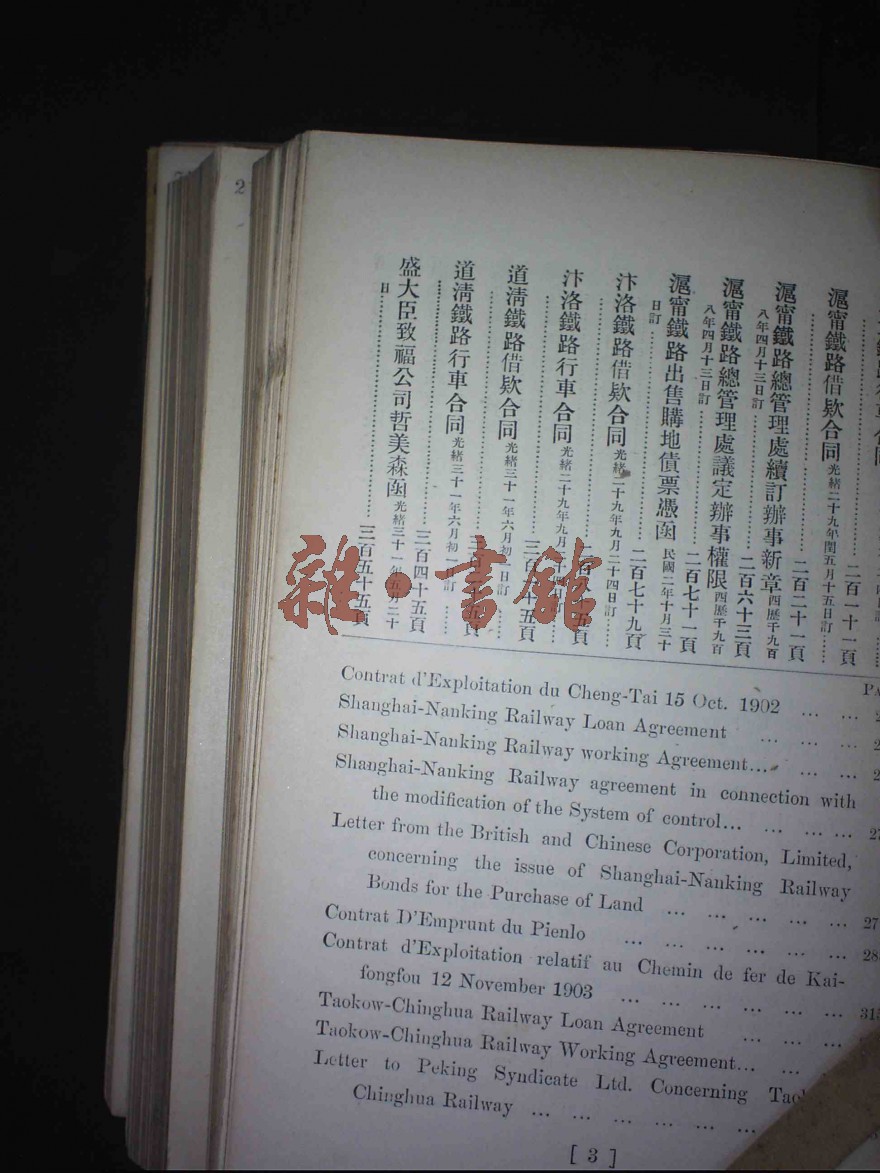 滬甯鐵路借欵合同 光緒二十九年閏五月十五日訂 …… 二百一十一頁
滬甯鐵路總管理處續訂辦事新章 西歷千九百八年四月十三日訂 …… 二百二十一頁
滬甯鐵路總管理處議定辦事權限 西歷千九百八年四月十三日訂 …… 二百六十三頁
滬甯鐵路出售購地債票憑函 民國二年十月三十日訂 …… 二百七十一頁
汴洛鐵路借欵合同 光緒二十九年九月二十四日訂 …… 二百七十九頁
汴洛鐵路行車合同 光緒二十九年九月
道淸鐵路借欵合同 光緒三十一年六月初一日訂
道淸鐵路行車合同 光緒三十一年六月初一日訂 …… 三百四十五頁
盛大臣致福公司哲美森函 光緒三十一年五月二十日 …… 三百五十五頁
雜·書館
2
Contrat d'Exploitation du Cheng-Tai 15 Oct. 1902 ... ...
Shanghai-Nanking Railway Loan Agreement ... ... ...
Shanghai-Nanking Railway working Agreement... ... ...
Shanghai-Nanking Railway agreement in connection with
the modification of the System of control... ... ... ...
Letter from the British and Chinese Corporation, Limited,
concerning the issue of Shanghai-Nanking Railway
Bonds for the Purchase of Land ... ... ... ... ...
Contrat D'Emprunt du Pienlo ... ... ... ... ...
Contrat d'Exploitation relatif au Chemin de fer de Kai-
fongfou 12 November 1903 ... ... ... ... ... 315
Taokow-Chinghua Railway Loan Agreement ... ... ...
Taokow-Chinghua Railway Working Agreement... ...
Letter to Peking Syndicate Ltd. Concerning
Chinghua Railway ... ... ... ... ... ...
[ 3 ]